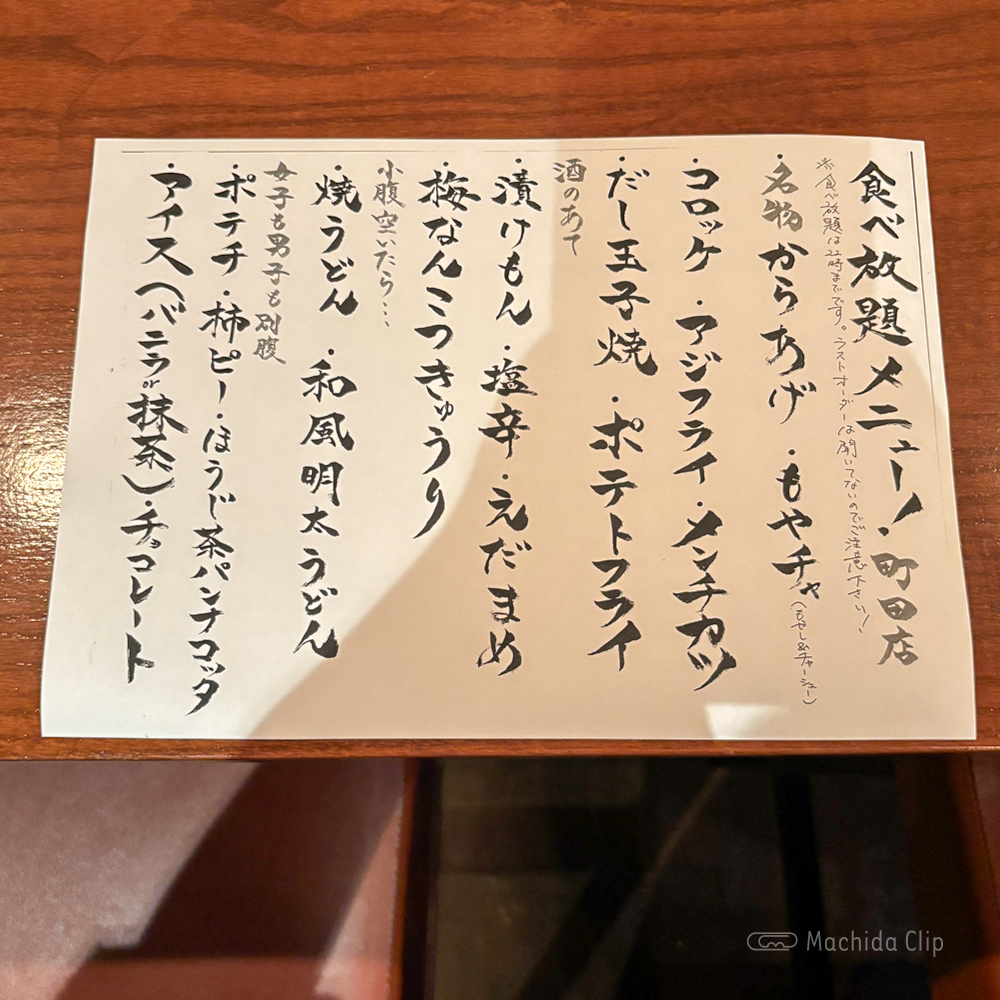 食べ放題メニュー！ 町田店
※食べ放題は22時までです。ラストオーダーは聞いてないのでご注意下さい！
・名物からあげ ・もやチャ(もやし&チャーシュー)
・コロッケ ・アジフライ・メンチカツ
・だし玉子焼 ・ポテトフライ
酒のあて
・漬けもん ・塩辛 ・えだまめ
・梅なんこつきゅうり
小腹空いたら…
・焼うどん ・和風明太うどん
女子も男子も別腹
・ポテチ ・柿ピー ・ほうじ茶パンナコッタ
・アイス(バニラor抹茶) ・チョコレート
Machida Clip